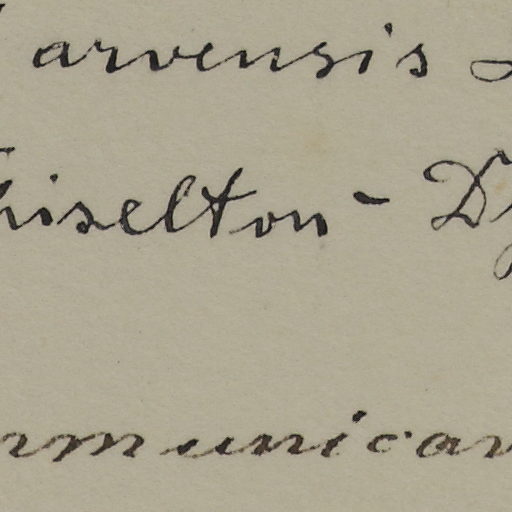 arvensis
hiselton - Dy
mmunicav